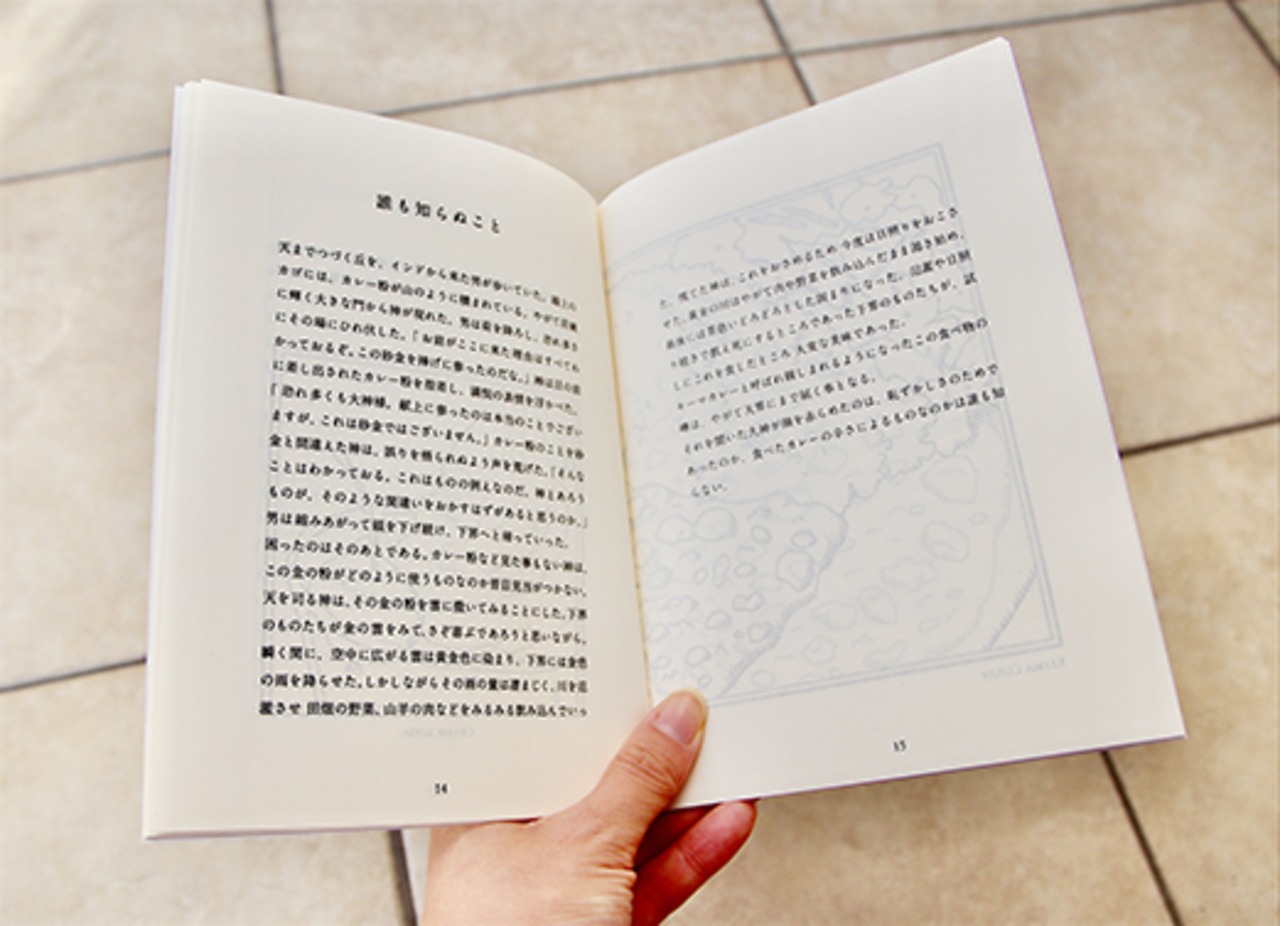 誰も知らぬこと
天までつづく丘を、インドから来た男が歩いていた。頭上の
カゴには、カレー粉が山のように積まれている。やがて荘厳
に輝く大きな門から神が現れた。男は荷を降ろし、恐れ多さ
にその場にひれ伏した。「お前がここに来た理由はすべてわ
かっておるぞ。この砂金を捧げに参ったのだな。」神は目の前
に差し出されたカレー粉を指差し、満悦の表情を浮かべた。
「恐れ多くも大神様。献上に参ったのは本当のことでござい
ますが、これは砂金ではございません。」カレー粉のことを砂
金と間違えた神は、誤りを悟られぬよう声を荒げた。「そんな
ことはわかっておる。これはものの例えなのだ。神とあろう
ものが、そのような間違いをおかすはずがあると思うのか。」
男は縮みあがって頭を下げ続け、下界へと帰っていった。
困ったのはそのあとである。カレー粉など見た事もない神は、
この金の粉がどのように使うものなのか皆目見当がつかない。
天を司る神は、その金の粉を雲に撒いてみることにした。下界
のものたちが金の雲をみて、さぞ喜ぶであろうと思いながら。
瞬く間に、空中に広がる雲は黄金色に染まり、下界には金色
の雨を降らせた。しかしながらその雨の量は凄まじく、川を氾
濫させ 田畑の野菜、山羊の肉などをみるみる飲み込んでいっ
14
た。慌てた神は、これをおさめるため 今度は日照りをおこさ
せた。黄金の川はやがて肉や野菜を飲み込んだまま沸き始め、
最後には茶色いどろどろとした固まりになった。氾濫や日照
り続きで飢え死にするところであった下界のものたちが、試
しにこれを食したところ 大変な美味であった。
キーマカレーと呼ばれ親しまれるようになったこの食べ物の
噂は、やがて天界にまで届く事となる。
それを聞いた大神が頬を赤らめたのは、恥ずかしさのためで
あったのか、食べたカレーの辛さによるものなのかは誰も知
らない。
15